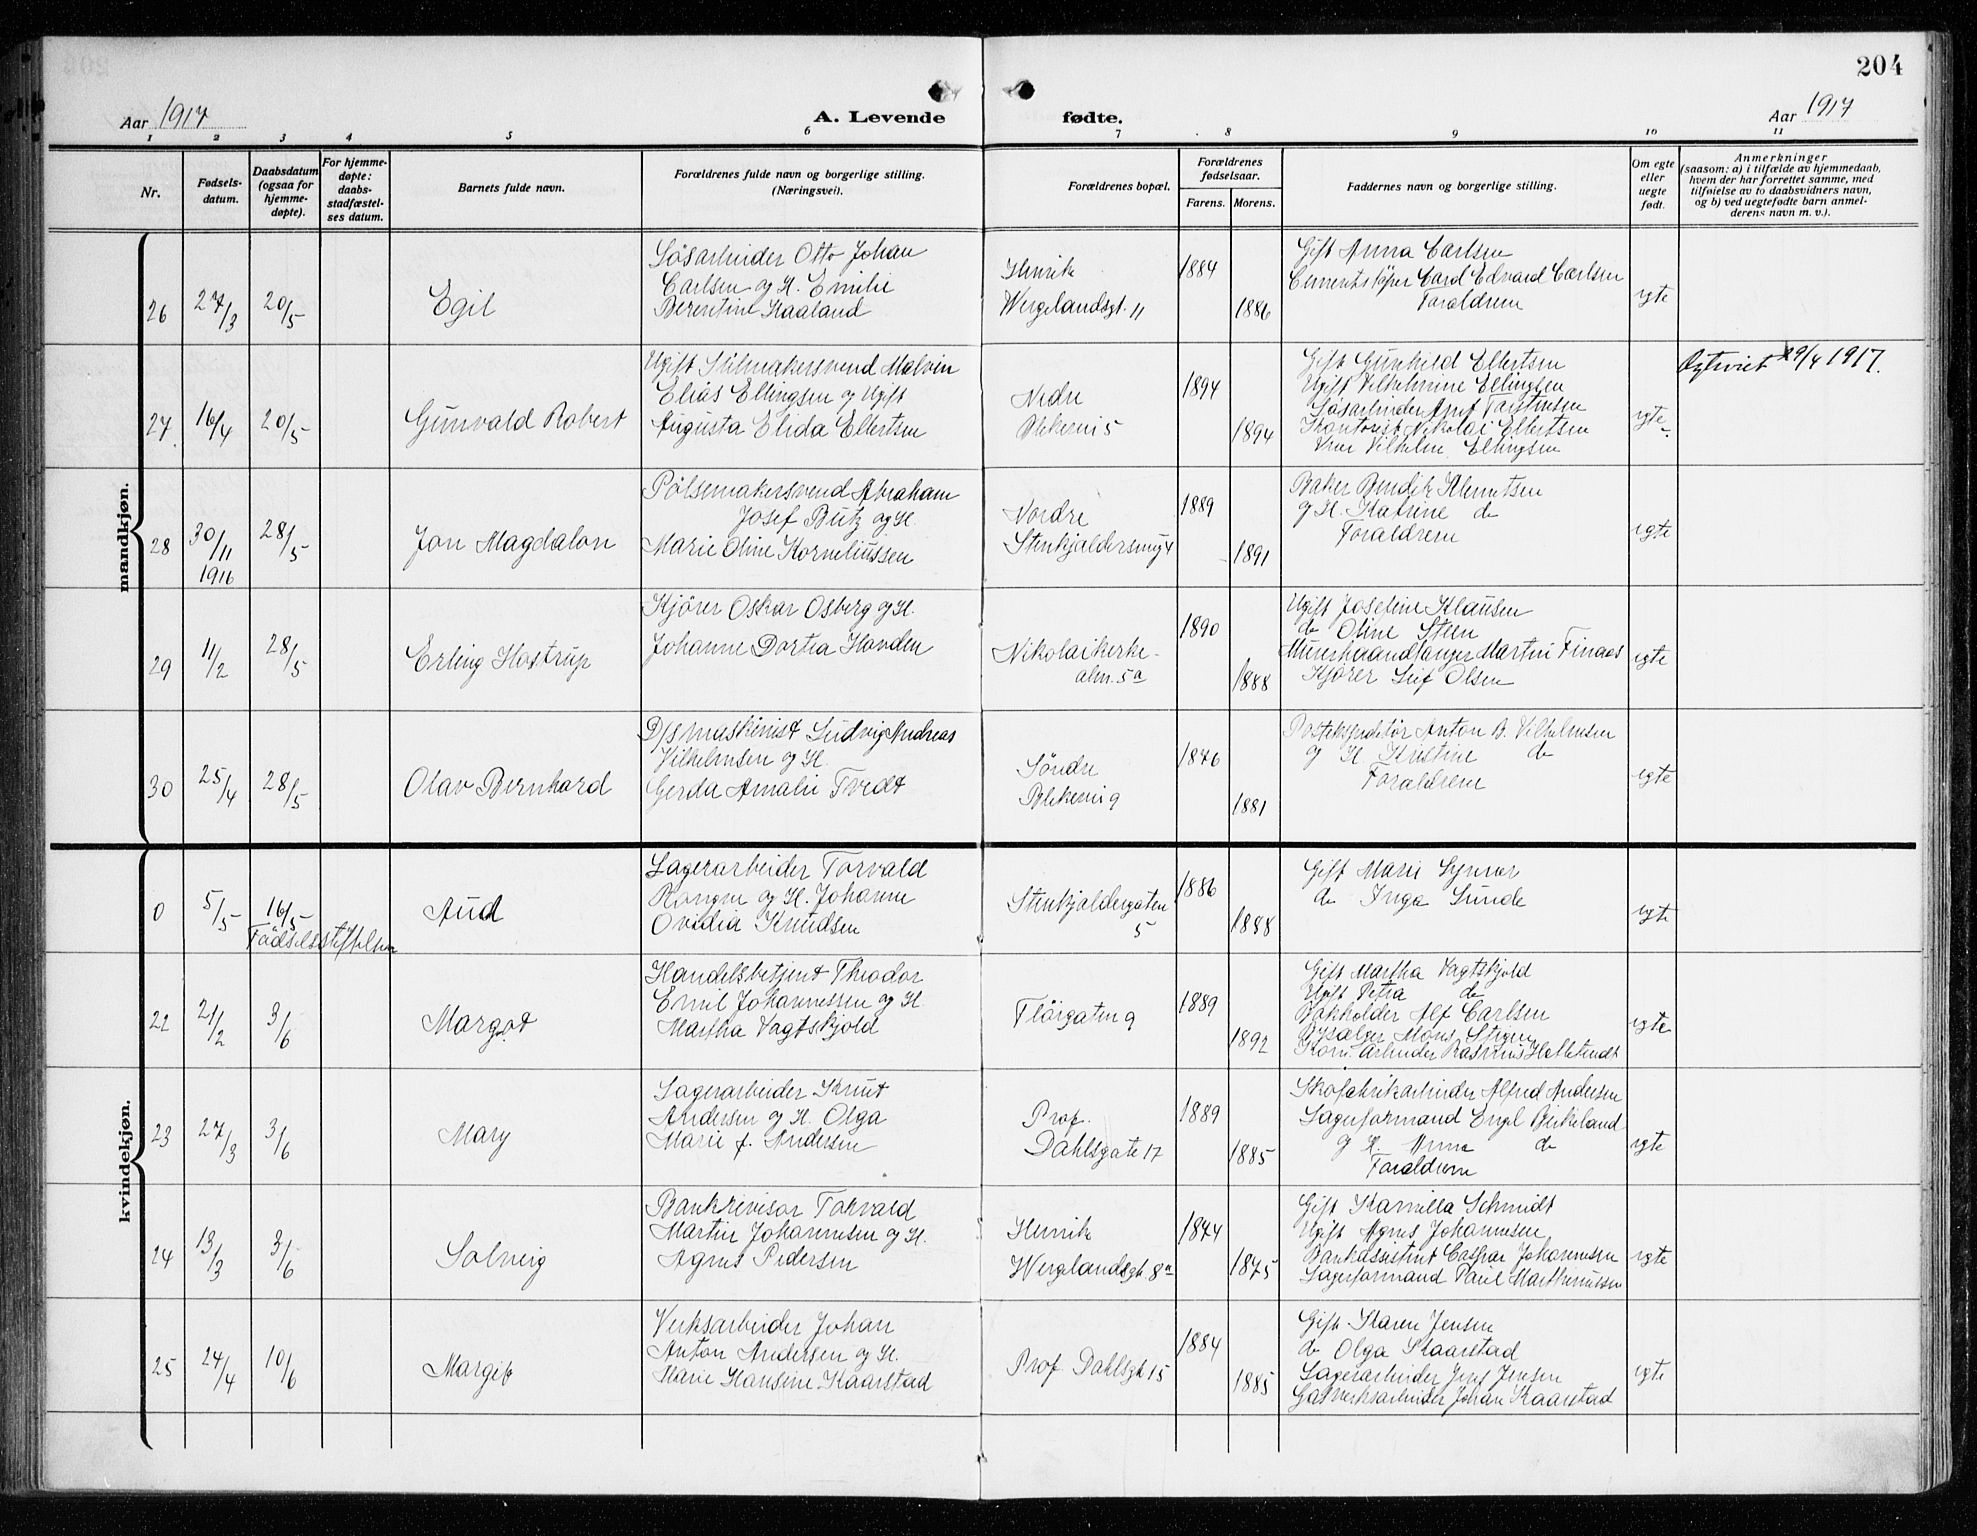 204
Aar 1917
A. Levende fødte.
Aar 1917
1 2 3 4 5 6 7 8 9 10 11
Nr.
Fødsels-
datum.
Daabsdatum
(ogsaa for
hjemme-
døpte).
For hjemme-
døpte:
daabs-
stadfæstel-
ses datum.
Barnets fulde navn.
Forældrenes fulde navn og borgerlige stilling.
(Næringsvei).
Forældrenes bopæl.
Forældrenes
fødselsaar.
Farens. Morens.
Faddernes navn og borgerlige stilling.
Om egte
eller
uegte
født.
Anmerkninger
(saasom: a) i tilfælde av hjemmedaab,
hvem der har forrettet samme, med
tilføielse av to daabsvidners navn,
og b) ved uegtefødte barn anmel-
derens navn m. v.).
mandkjøn.
26
27/3
20/5
Egil
Løsarbeider Otto Johan
Carlsen og H. Emilie
Berentine Kaaland
Henrik
Wergelandsgt. 11
1884
1886
Gift Anna Carlsen
Carl Edvard Carlsen
Forældrene
egte
27
16/4
20/5
Gunvald Robert
Ugift Seilmakersvend Malvin
Elias Ellingsen og Ugift
Augusta Elida Ellertsen
Nedre
Blekevei 5
1894
1894
Gift Gunhild Ellertsen
Ugift Vilhelmine Ellingsen
Løsarbeider Torstensen
Kontorist Nikolai Ellertsen
Vilhelm Ellingsen
egte
Egteviet 29/4 1917.
28
30/11
1916
28/5
Jon Magdalon
Pølsemakersvend Abraham
Josef Butz og H.
Marie Oline Korneliussen
Nordre
Stenkjeldersmug 4
1889
1891
Baker Bendik Klemetsen
og H. Katrine do
Forældrene
egte
29
11/2
28/5
Erling Hostrup
Kjører Oskar Osberg og H.
Johanne Dortea Hovden
Nikolaikirke-
alm. 5a
1890
1888
Ugift Josefine Klausen
do Oline Steen
Murerhaandlanger Martin Finaas
Kjører Leif Olsen
egte
30
25/4
28/5
Olav Bernhard
D/S maskinist Ludvig Andreas
Vilhelmsen og H.
Gerda Amalie Tvedt
Søndre
Blekevei 9
1876
1881
Postekspeditør Anton B. Vilhelmsen
og H. Kristine do
Forældrene
egte
kvindekjøn.
0
5/5
16/5
Fødselsstiftelsen
Aud
Lagerarbeider Torvald
og H. Johanne
Ovidia Knudsen
Stenkjeldergaten
5
1886
1888
Gift Marie
do Inga Sunde
egte
22
21/2
3/6
Margot
Handelsbetjent Theodor
Emil Johannessen og H.
Martha Vagtskjold
Fløigaten 9
1889
1892
Gift Martha Vagtskjold
Ugift Petra do
Bokholder Alf Carlsen
Mons Stigen
Kom. Arbeider Rasmus
egte
23
27/3
3/6
Mary
Lagerarbeider Knut
Andersen og H. Olga
Marie f. Andersen
Prof.
Dahlsgate 17
1889
1885
Skofabrikarbeider Alfred Andersen
Lagerformand Engel Birkeland
og H. Anna do
Forældrene
egte
24
13/3
3/6
Solveig
Bankrevisor Torvald
Martin Johannesen og H.
Agnes Pedersen
Henrik
Wergelandsgt. 8a
1874
1875
Gift Kamilla Schmidt
Ugift Agnes Johannesen
Bankassistent Caspar Johannesen
Lagerformand Paul Marthinussen
egte
25
24/4
10/6
Margit
Verksarbeider Johan
Anton Andersen og H.
Marie Hansine Kaarstad
Prof Dahlsgt 15
1884
1885
Gift Karen Jensen
do Olga Kaarstad
Lagerarbeider Jens Jensen
Gasverksarbeider Johan Kaarstad
egte